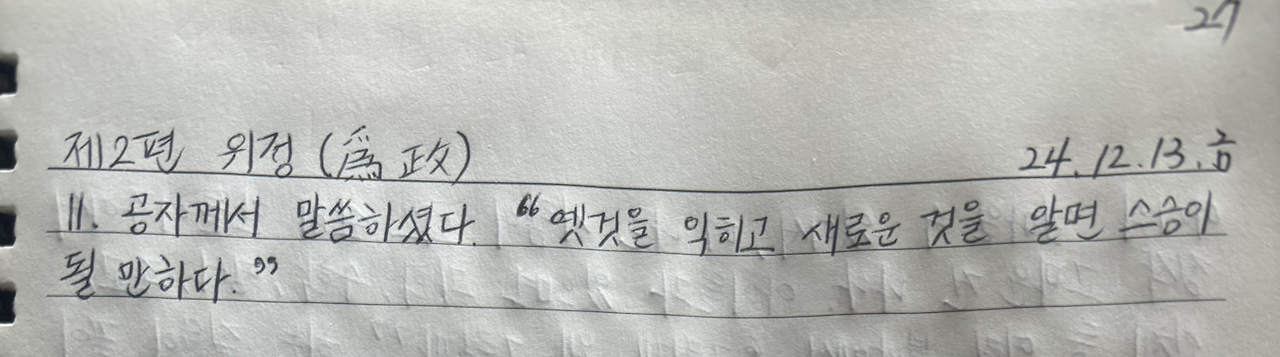 27
제2편 위정 (爲政) 24.12.13.금
11. 공자께서 말씀하셨다. "옛것을 익히고 새로운 것을 알면 스승이
될 만하다."